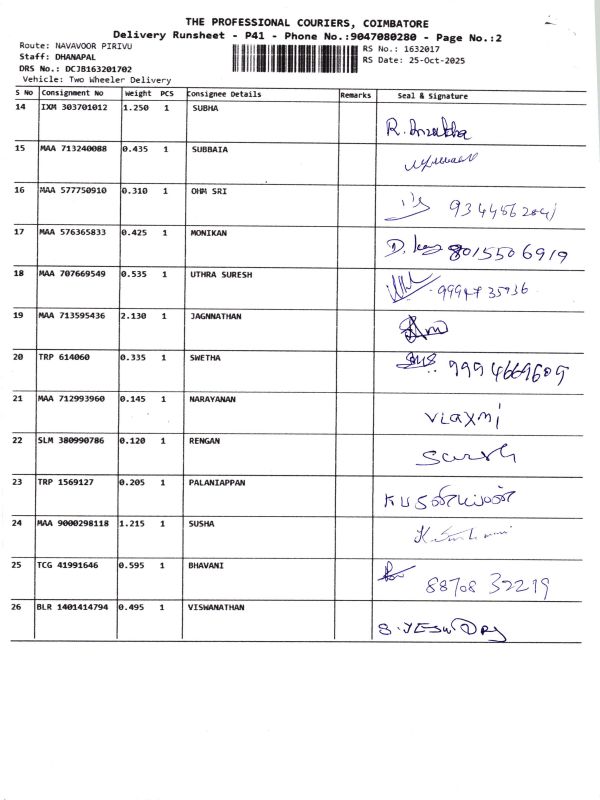 THE PROFESSIONAL COURIERS, COIMBATORE
Delivery Runsheet - P41 - Phone No.:9047080280 - Page No.:2
Route: NAVAVOOR PIRIVU RS No.: 1632017
Staff: DHANAPAL RS Date: 25-Oct-2025
DRS No.: DCJB163201702
Vehicle: Two Wheeler Delivery
S No Consignment No Weight PCS Consignee Details Remarks Seal & Signature
14 IXM 303701012 1.250 1 SUBHA
R.
15 MAA 713240088 0.435 1 SUBBAIA
16 MAA 577750910 0.310 1 OHM SRI
17 MAA 576365833 0.425 1 MONIKAN
D. 8015506919
18 MAA 707669549 0.535 1 UTHRA SURESH
19 MAA 713595436 2.130 1 JAGNNATHAN
20 TRP 614060 0.335 1 SWETHA
9994669609
21 MAA 712993960 0.145 1 NARAYANAN
VLaxmi
22 SLM 380990786 0.120 1 RENGAN
23 TRP 1569127 0.205 1 PALANIAPPAN
24 MAA 9000298118 1.215 1 SUSHA
25 TCG 41991646 0.595 1 BHAVANI
88708 32219
26 BLR 1401414794 0.495 1 VISWANATHAN